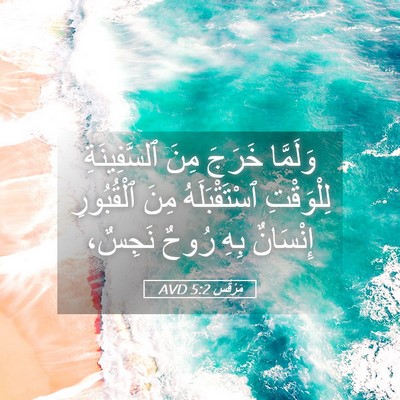 وَلَمَّا خَرَجَ مِنَ ٱلسَّفِينَةِ
لِلْوَقْتِ ٱسْتَقْبَلَهُ مِنَ ٱلْقُبُورِ
إِنْسَانٌ بِهِ رُوحٌ نَجِسٌ،
مَرْقُس 5:2 AVD